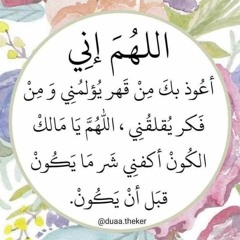 اللهُمَ إنِي
أعُوذ بكَ مِنْ قَهر يُؤلمُنِي وَ مِنْ
فَكر يُقلقُنِي ، اللّهُمَّ يَا مَالكْ
الكُونْ أكفنِي شَر مَا يَكُونْ
قبَل أنْ يَكُونْ.
@duaa.theker